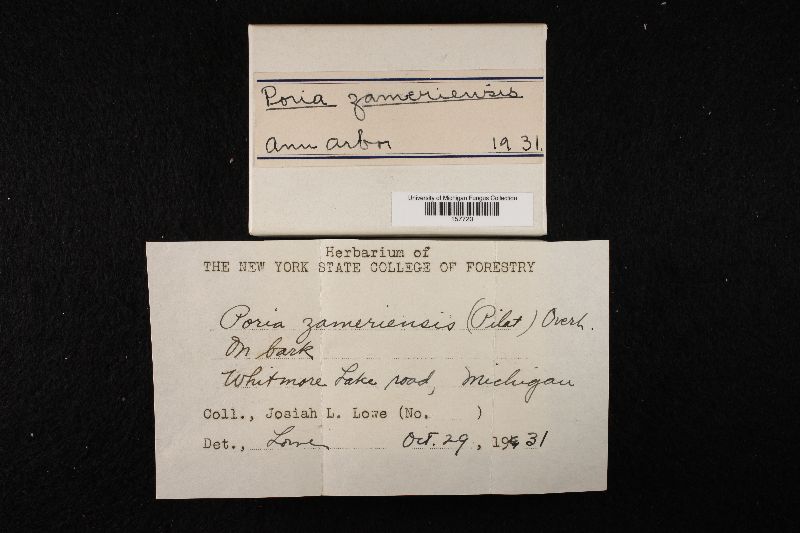 Poria zameriensis
Ann Arbor 1931.
University of Michigan Fungus Collection
157720
Herbarium of
THE NEW YORK STATE COLLEGE OF FORESTRY
Poria zameriensis (Pilat) Overh.
On bark
Whitmore Lake road, Michigan
Coll., Josiah L. Lowe (No. )
Det., Lowe Oct. 29, 1931